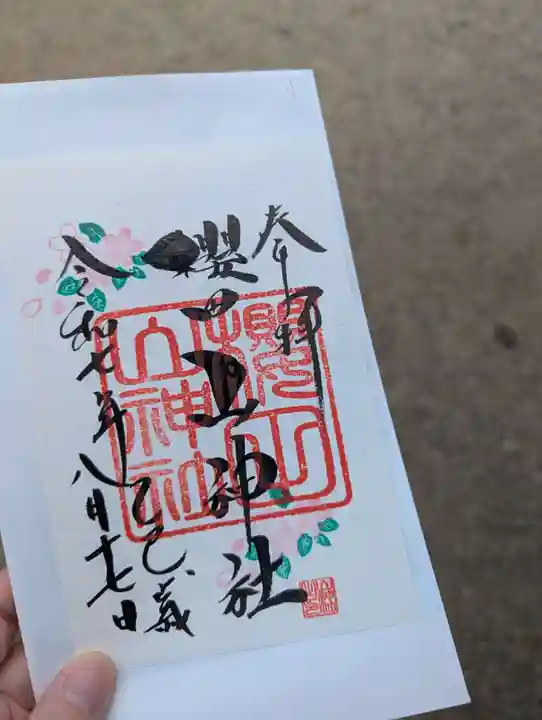 奉拝
櫻田山神社
令和七年八月十七日
乙巳歳
櫻田
山神社